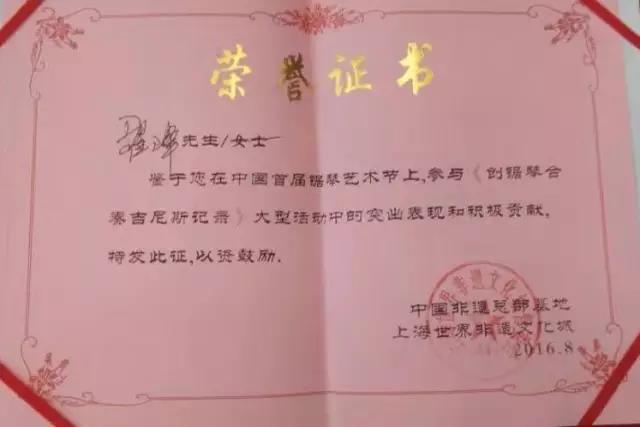 荣誉证书
先生/女士
鉴于您在中国首届锯琴艺术节上,参与《创锯琴合
奏吉尼斯记录》大型活动中的突出表现和积极贡献。
特发此证,以资鼓励.
中国非遗总部基地
上海世界非遗文化城
2016.8